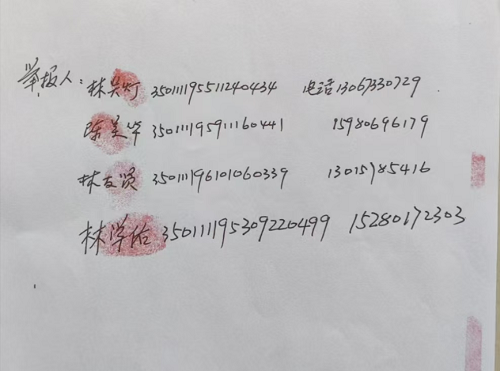 举报人：林吴灯 350111195511240434 电话13067330729
陈美华 350111195911160441 15980696179
林友贤 350111196101060339 13015785416
林学佑 350111195309220499 15280172303